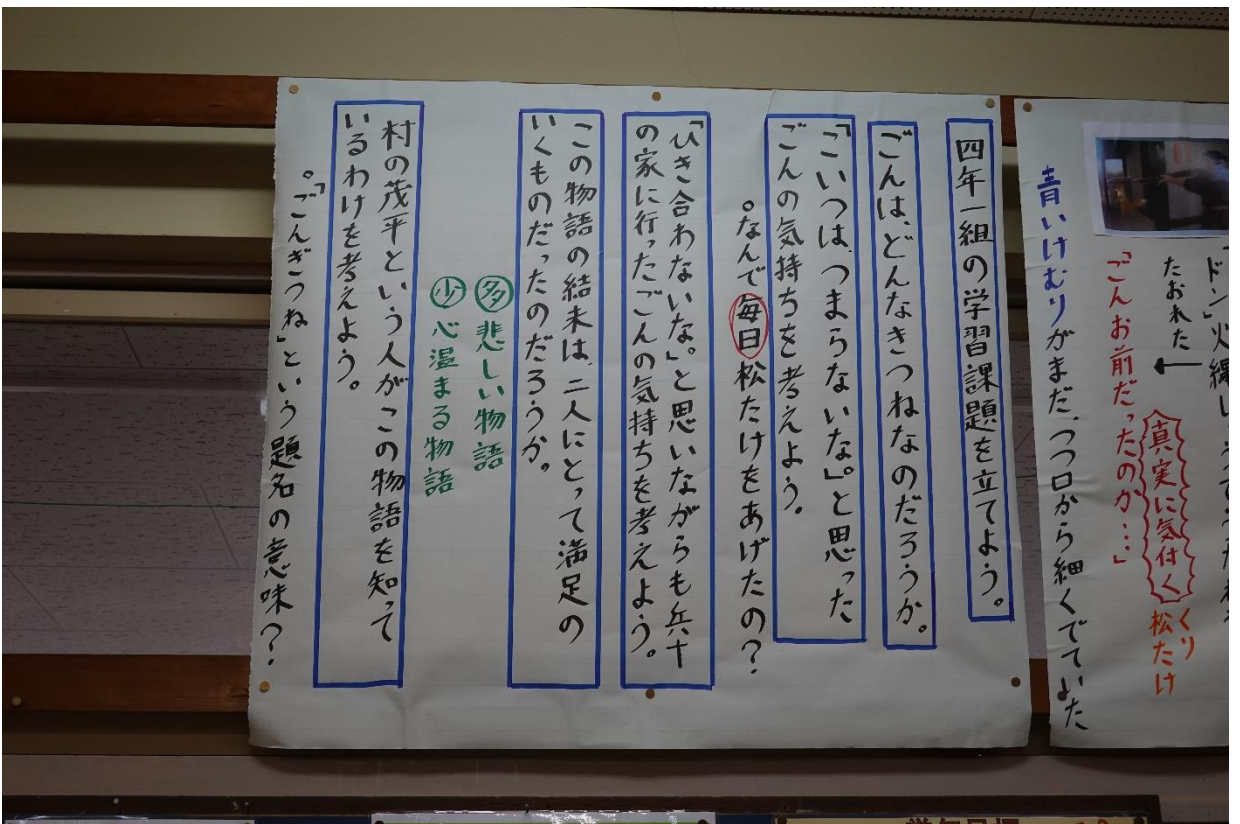 たおれた
真実に気付く
くり
松たけ
「ごんお前だったのか…」
青いけむりがまだ、つつ口から細くでていた
四年一組の学習課題を立てよう。
ごんは、どんなきつねなのだろうか。
「こいつは、つまらないな。」と思った
ごんの気持ちを考えよう。
。なんで毎日松たけをあげたの？
「ひき合わないな。」と思いながらも兵十
の家に行ったごんの気持ちを考えよう。
この物語の結末は、二人にとって満足の
いくものだったのだろうか。
多 悲しい物語
少 心温まる物語
村の茂平という人がこの物語を知って
いるわけを考えよう。
。「ごんぎつね」という題名の意味？